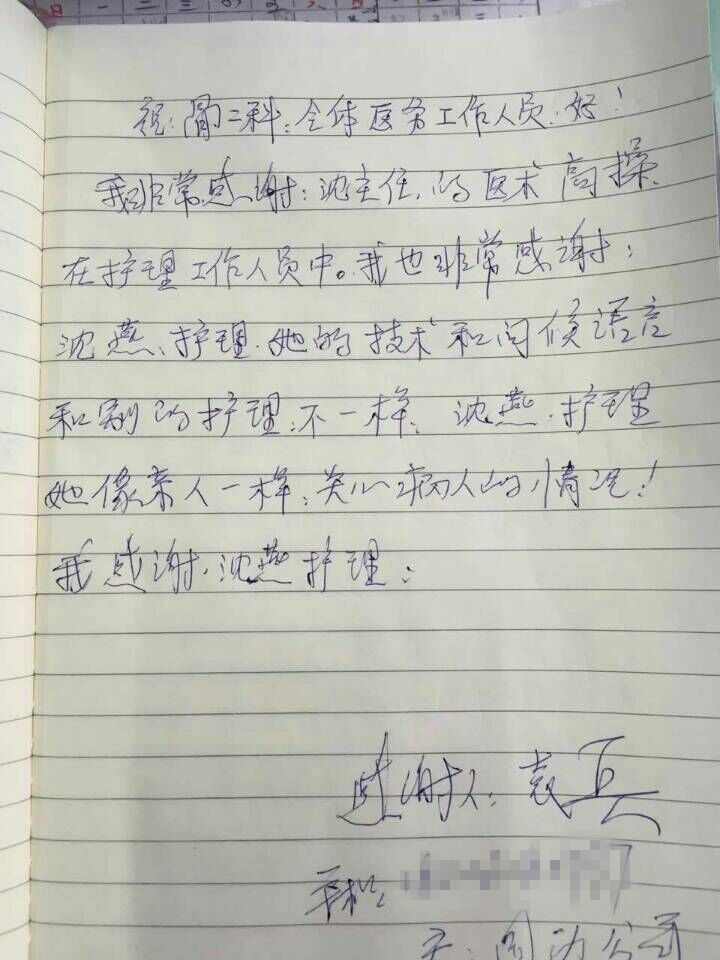 日 一 二 三
祝:骨二科:全体医务工作人员:好!
我非常感谢:沈主任,的医术高操、
在护理工作人员中。我也非常感谢:
沈燕、护理.她的技术和问候语言
和别的护理:不一样、沈燕.护理
她像亲人一样:关心病人的情况!
我感谢.沈燕护理:
感谢人:袁
手机:
公司